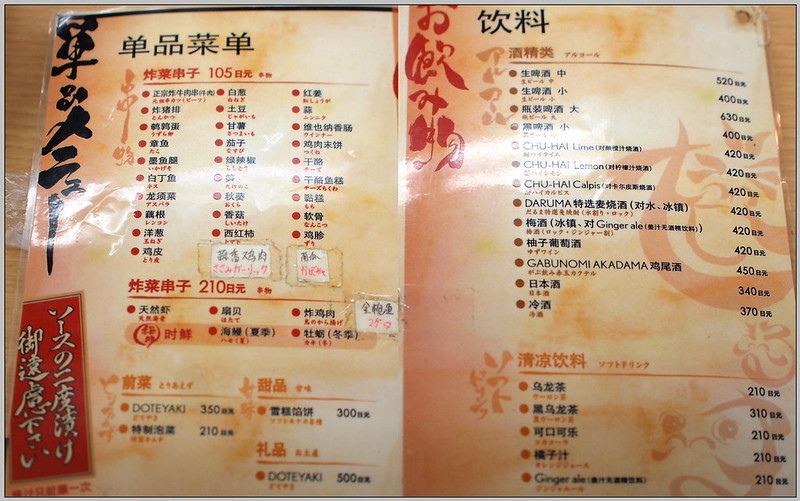 单品メニュー
单品菜单
串物
炸菜串子 105日元 串物
正宗炸牛肉串(牛肉)
元祖串カツ(ビーフ)
白葱
白ねぎ
红姜
紅しょうが
炸猪排
とんかつ
土豆
じゃがいも
蒜
ニンニク
鹌鹑蛋
うずら
甘薯
さつまいも
维也纳香肠
ウインナー
章鱼
たこ
茄子
なすび
鸡肉末饼
つくね
墨鱼腿
いかげそ
绿辣椒
ししとう
干酪
チーズ
白丁鱼
キス
笋
たけのこ
干酪鱼糕
チーズちくわ
龙须菜
アスパラ
秋葵
おくら
黏糕
もち
藕根
レンコン
香菇
しいたけ
软骨
なんこつ
洋葱
玉ねぎ
西红柿
トマト
鸡胗
ずり
鸡皮
とり皮
蒜香鸡肉
ささみガーリック
南瓜
かぼちゃ
炸菜串子 210日元 串物
天然虾
天然海老
扇贝
ほたて
炸鸡肉
鳥のから揚げ
金枪鱼
マグロ
时鲜
海鳗(夏季)
ハモ(夏)
牡蛎(冬季)
カキ(冬)
前菜 とりあえず
DOTEYAKI 350日元
どてやき
特制泡菜 210日元
甜品 甘味
雪糕馅饼 300日元
礼品 お土産
DOTEYAKI 500日元
どてやき
ソースの二度漬け
御遠慮下さい
酱汁只能蘸一次
お飲み物
饮料
アルコール
酒精类 アルコール
生啤酒 中 520日元
生ビール 中
生啤酒 小 400日元
生ビール 小
瓶装啤酒 大 630日元
瓶ビール 大
黑啤酒 小 400日元
CHU-HAI Lime(对酸橙汁烧酒) 420日元
酎ハイライム
CHU-HAI Lemon(对柠檬汁烧酒) 420日元
酎ハイレモン
CHU-HAI Calpis(对卡尔皮斯烧酒) 420日元
酎ハイカルピス
DARUMA特选麦烧酒(对水、冰镇) 420日元
だるま特選麦焼酎(水割り・ロック)
梅酒(冰镇、对Ginger ale(姜汁无酒精饮料)) 420日元
梅酒(ロック・ジンジャー割)
柚子葡萄酒 420日元
ゆずワイン
GABUNOMI AKADAMA 鸡尾酒 450日元
がぶ飲み赤玉カクテル
日本酒 340日元
日本酒
冷酒 370日元
冷酒
ソフトドリンク
清凉饮料 ソフトドリンク
乌龙茶 210日元
ウーロン茶
黑乌龙茶 310日元
黒ウーロン茶
可口可乐 210日元
コカコーラ
橘子汁 210日元
オレンジジュース
Ginger ale(姜汁无酒精饮料) 210日元
ジンジャエール